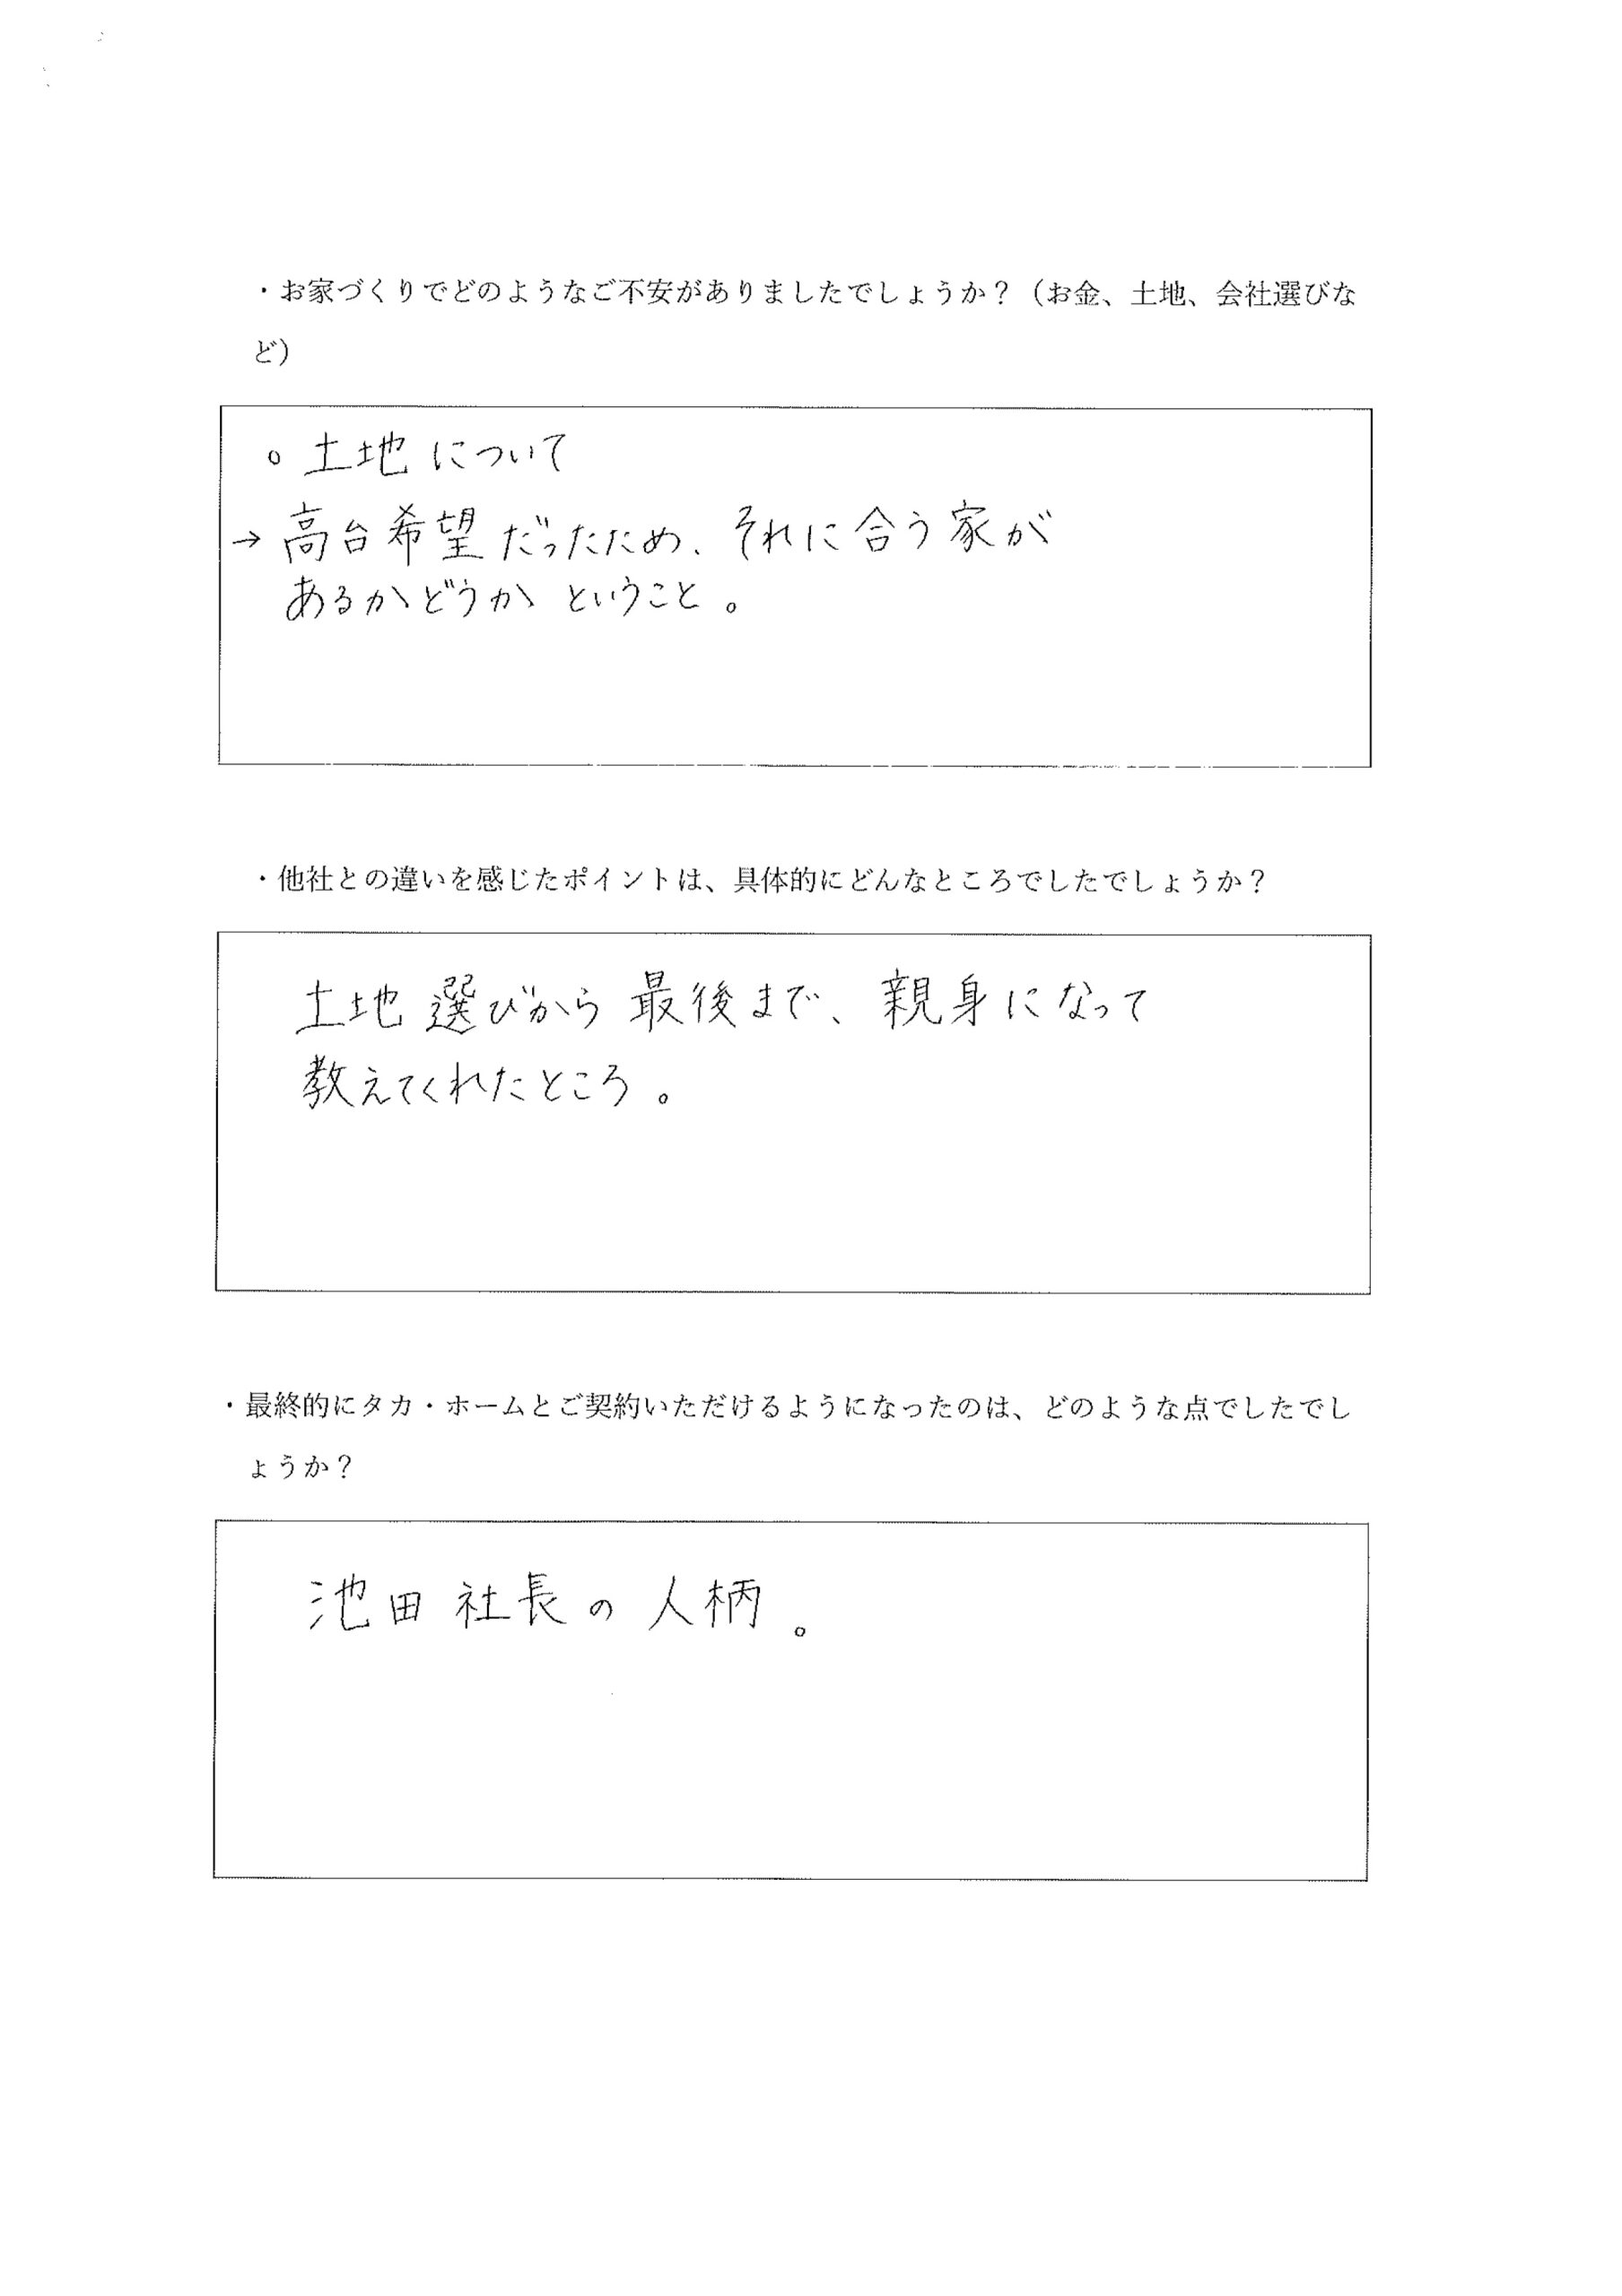 ・お家づくりでどのようなご不安がありましたでしょうか？（お金、土地、会社選びな
ど）
○ 土地について
→ 高台希望だったため、それに合う家が
あるかどうかということ。
・他社との違いを感じたポイントは、具体的にどんなところでしたでしょうか？
土地選びから最後まで、親身になって
教えてくれたところ。
・最終的にタカ・ホームとご契約いただけるようになったのは、どのような点でしたでし
ょうか？
池田社長の人柄。